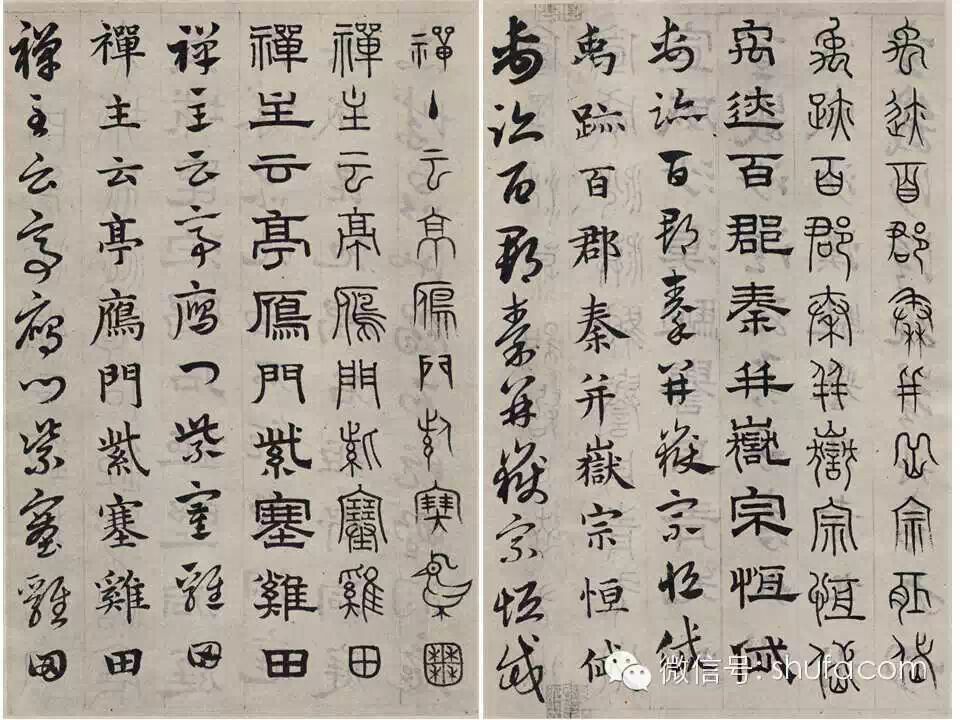 禹迹百郡秦并嶽宗恒岱
禹跡百郡秦并嶽宗恒岱
禹迹百郡秦并嶽宗恒岱
禹跡百郡秦并嶽宗恒岱
禹跡百郡秦并嶽宗恒岱
禹跡百郡秦并嶽宗恒岱
禪主云亭鴈門紫塞雞田
禪主云亭鴈門紫塞雞田
禪主云亭鴈門紫塞雞田
禪主云亭鴈門紫塞雞田
禪主云亭鴈門紫塞雞田
禪主云亭鴈門紫塞雞田
微信号: shufacom